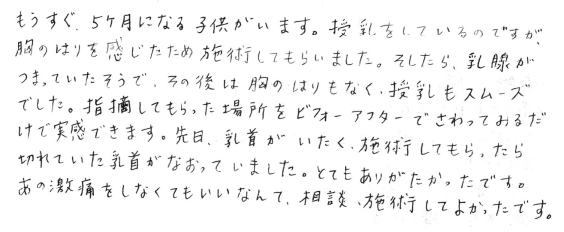 もうすぐ、5ケ月になる子供がいます。授乳をしているのですが、
胸のはりを感じたため施術してもらいました。そしたら、乳腺が
つまっていたそうで、その後は胸のはりもなく、授乳もスムーズ
でした。指摘してもらった場所をビフォーアフターでさわってみるだ
けで実感できます。先日、乳首がいたく、施術してもらったら
切れていた乳首がなおっていました。とてもありがたかったです。
あの激痛をしなくてもいいなんて、相談、施術してよかったです。